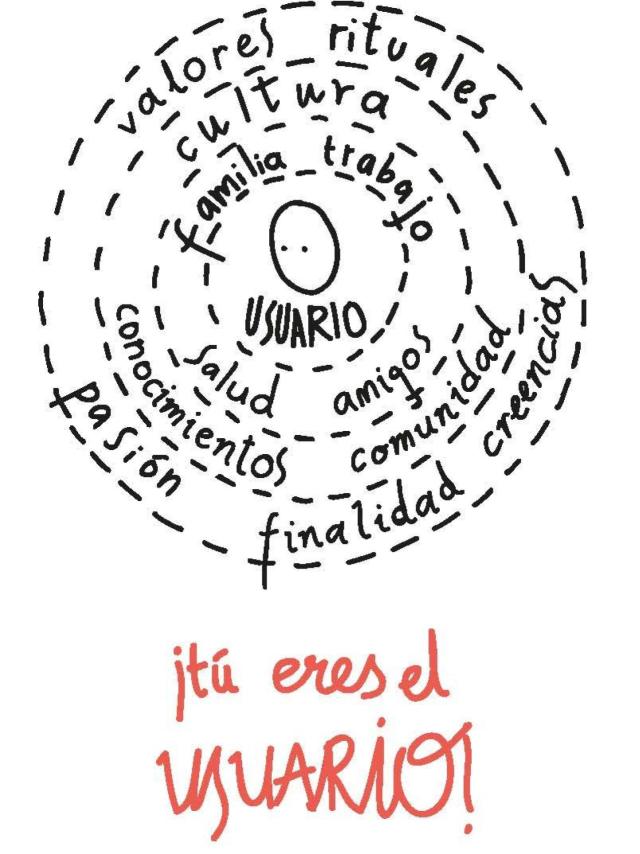 valores rituales
cultura
familia trabajo
USUARIO
salud amigos
conocimientos comunidad
pasión finalidad creencias
¡tú eres el
USUARIO!